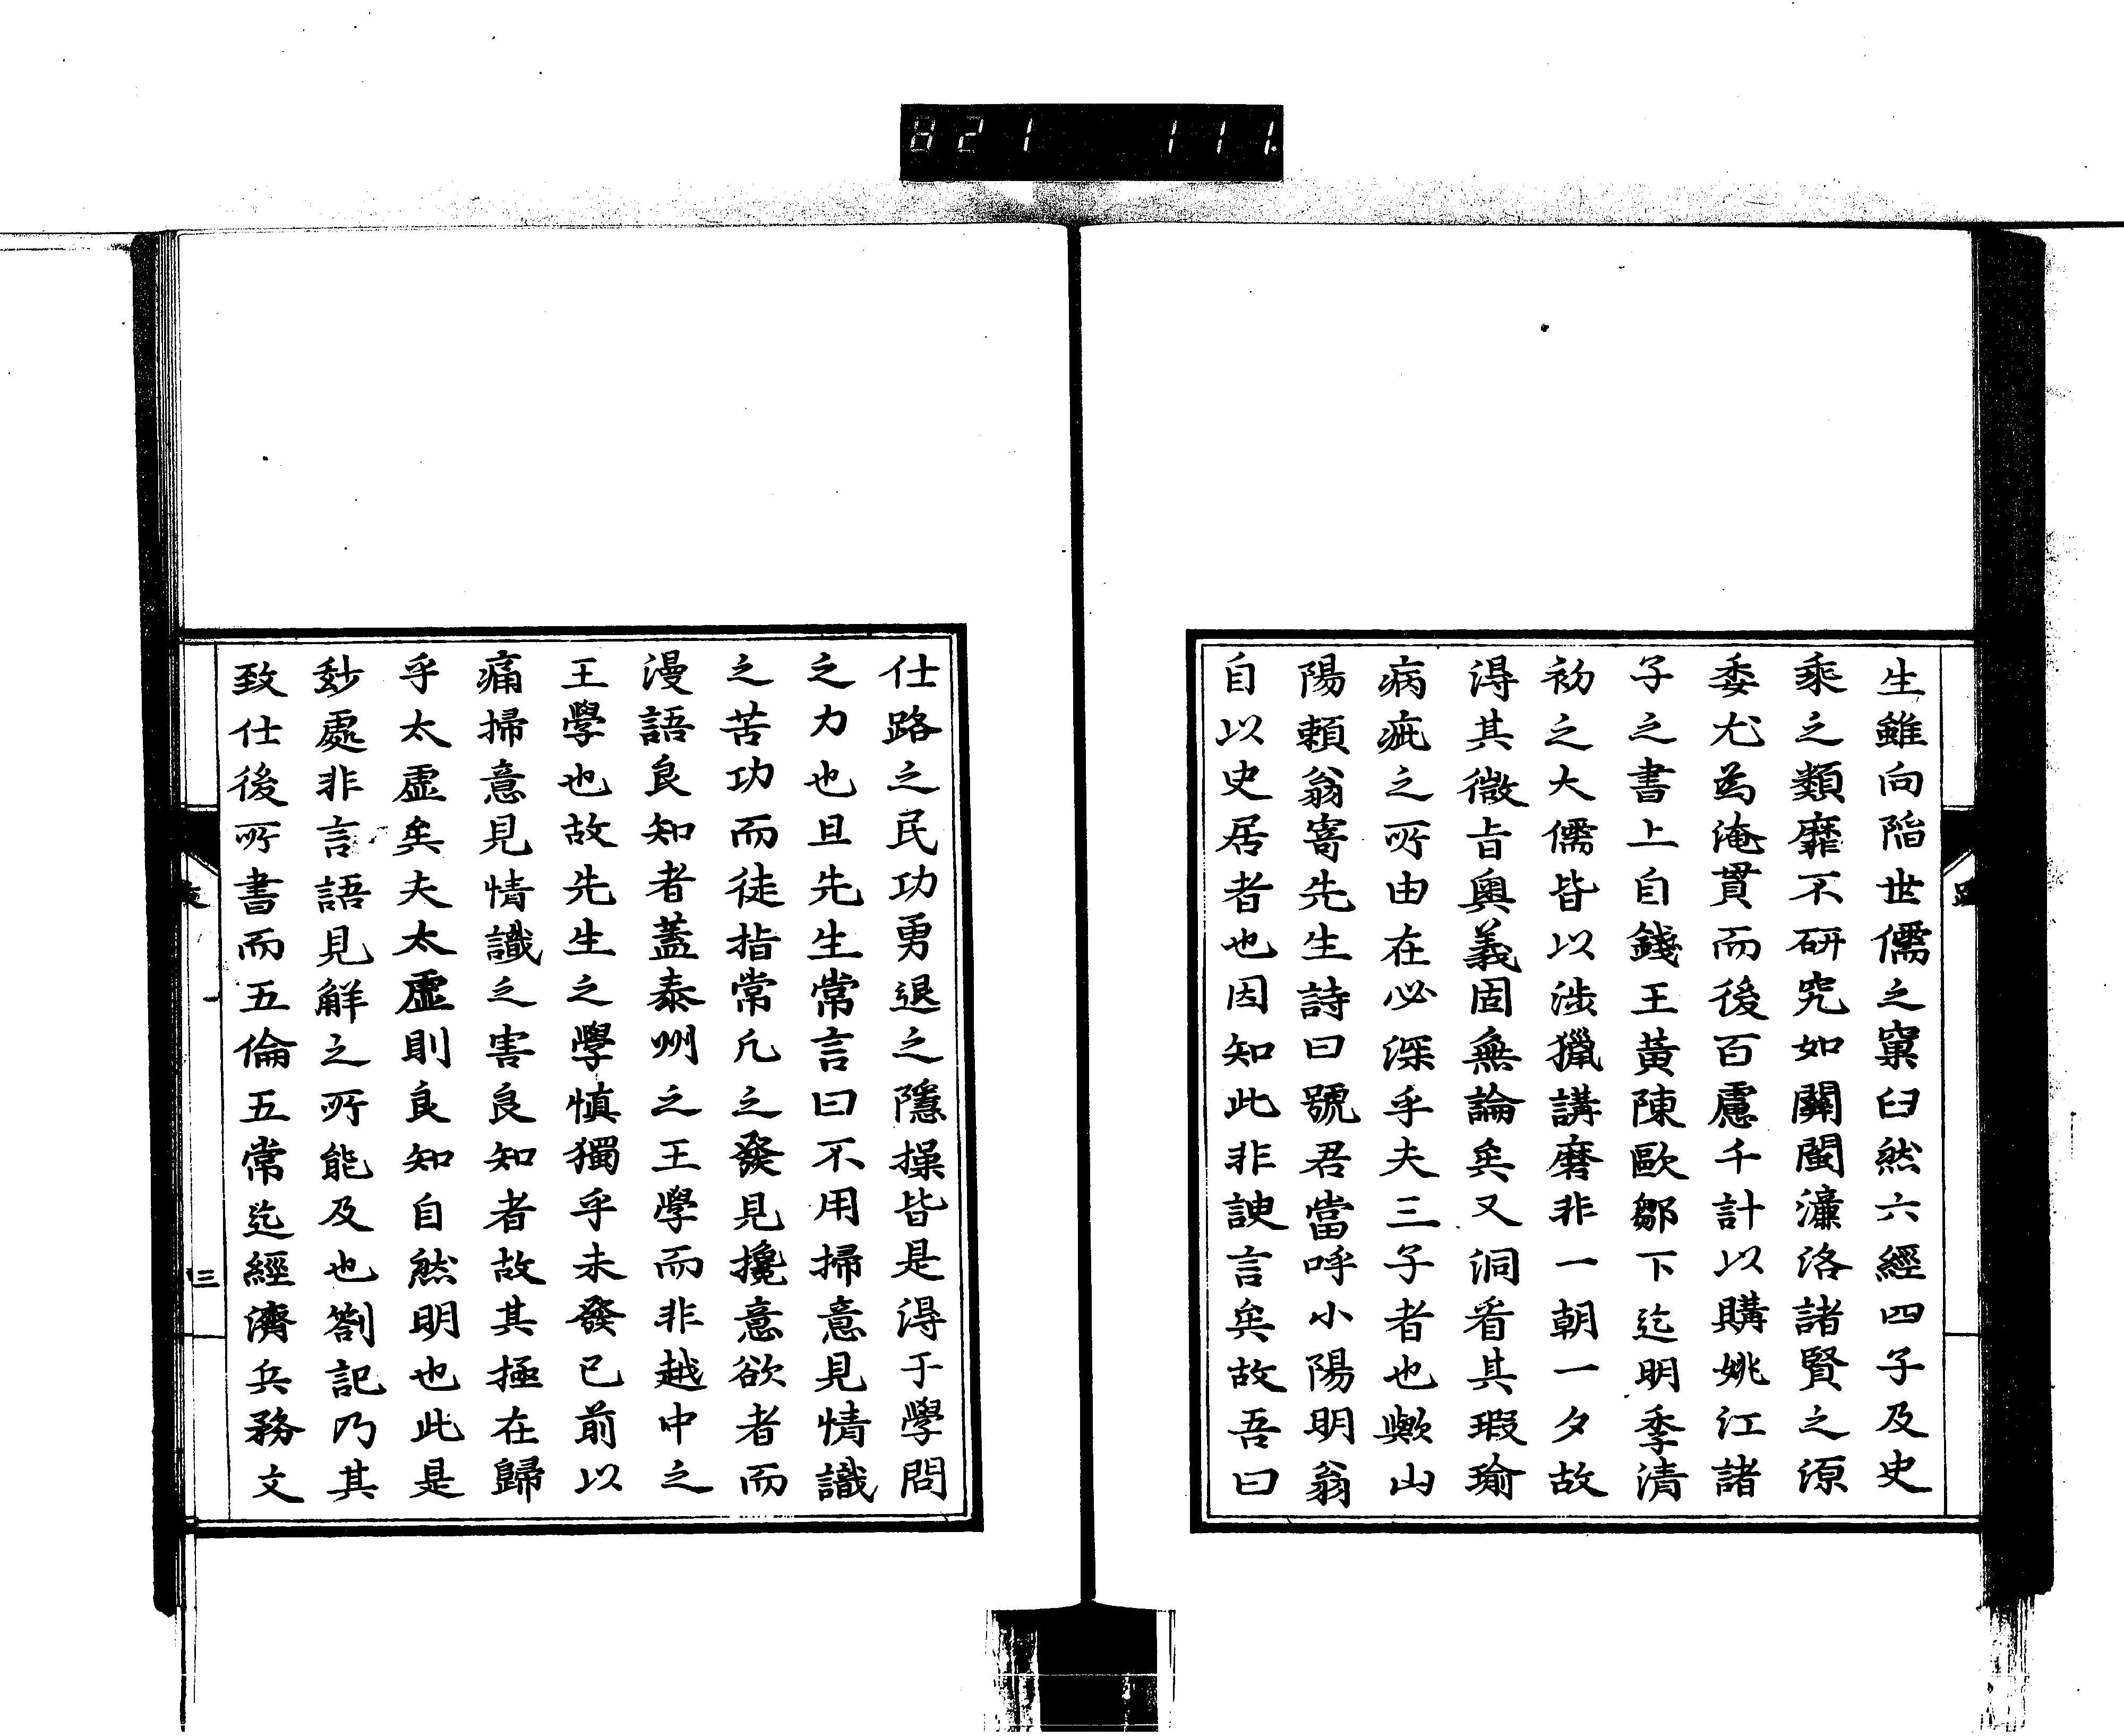 821 111.
生雖向陷世儒之窠臼然六經四子及史
乘之類靡不研究如關閩濂洛諸賢之源
委尤為淹貫而後百慮千計以購姚江諸
子之書上自錢王黃陳歐鄒下迄明季清
初之大儒皆以涉獵講磨非一朝一夕故
得其微旨奧義固無論矣又洞看其瑕瑜
病疵之所由在必深乎夫三子者也歟山
陽賴翁寄先生詩曰號君當呼小陽明翁
自以史居者也因知此非諛言矣故吾曰
仕路之民功勇退之隱操皆是得于學問
之力也且先生常言曰不用掃意見情識
之苦功而徒指常凡之發見攙意欲者而
漫語良知者蓋泰州之王學而非越中之
王學也故先生之學慎獨乎未發已前以
痛掃意見情識之害良知者故其極在歸
乎太虛矣夫太虛則良知自然明也此是
玅處非言語見解之所能及也劄記乃其
致仕後所書而五倫五常迄經濟兵務文
三